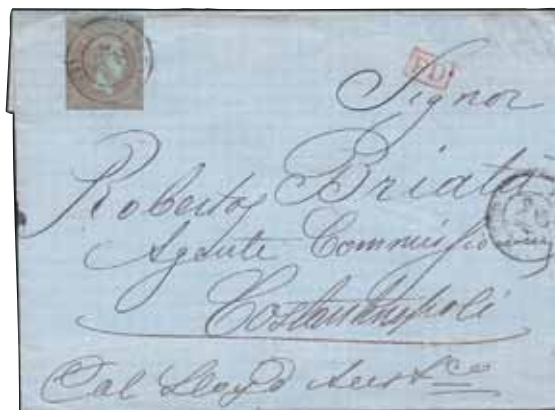 PD
Signor
Roberto Briata
Agente Commissionario
Costantinopoli
Col Lloyd Austco